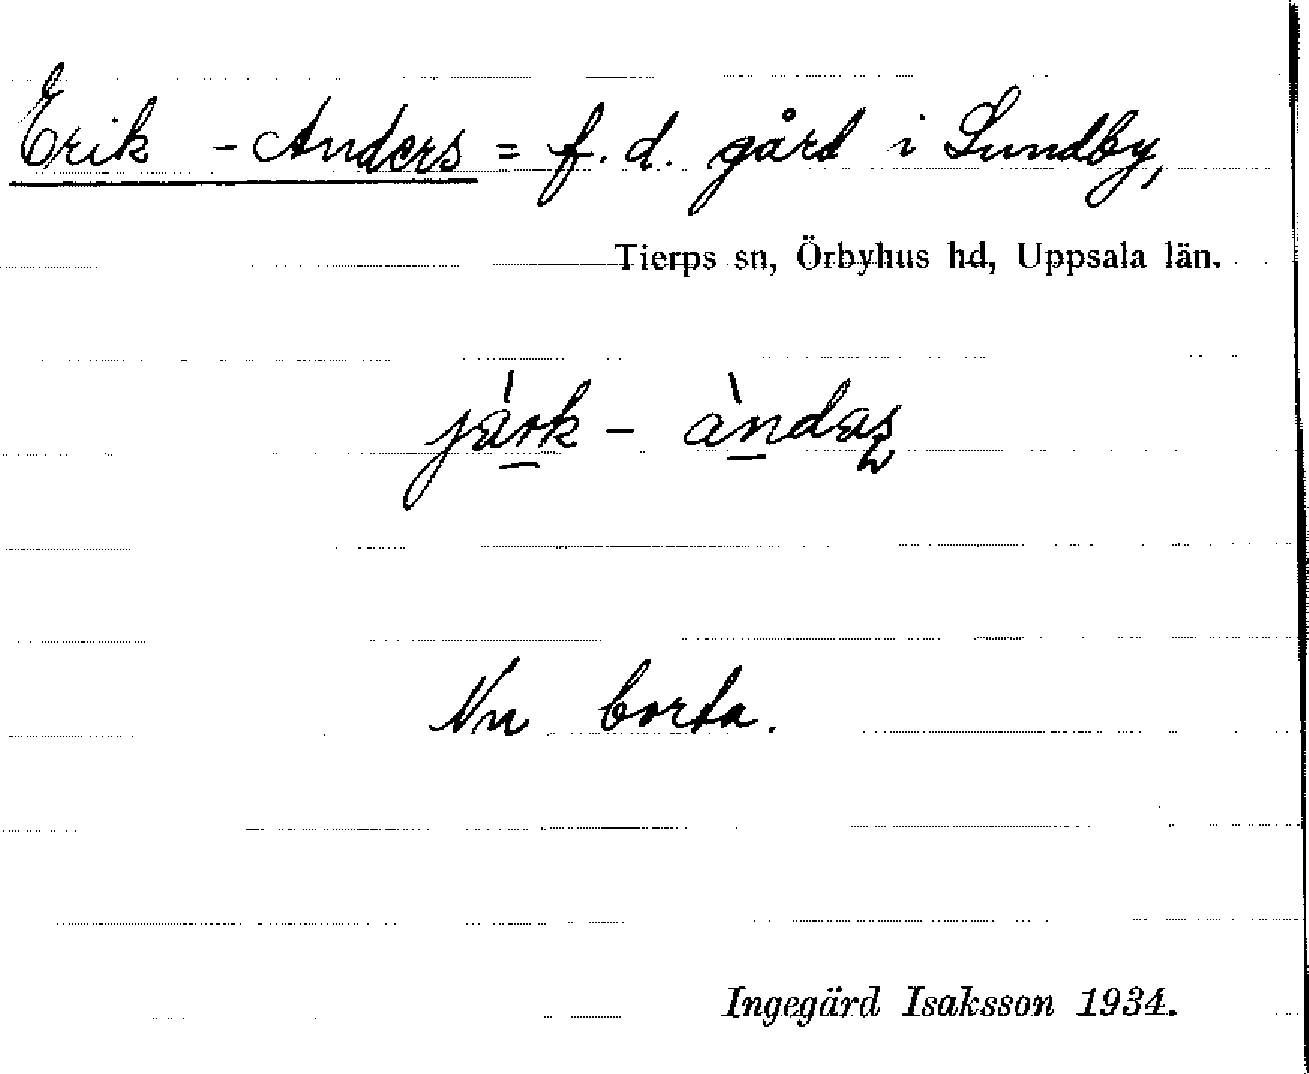 Erik - Anders = f. d. gård i Sundby,
Tierps sn, Örbyhus hd, Uppsala län.
jä̀rk - àndas
Nu borta.
Ingegärd Isaksson 1934.